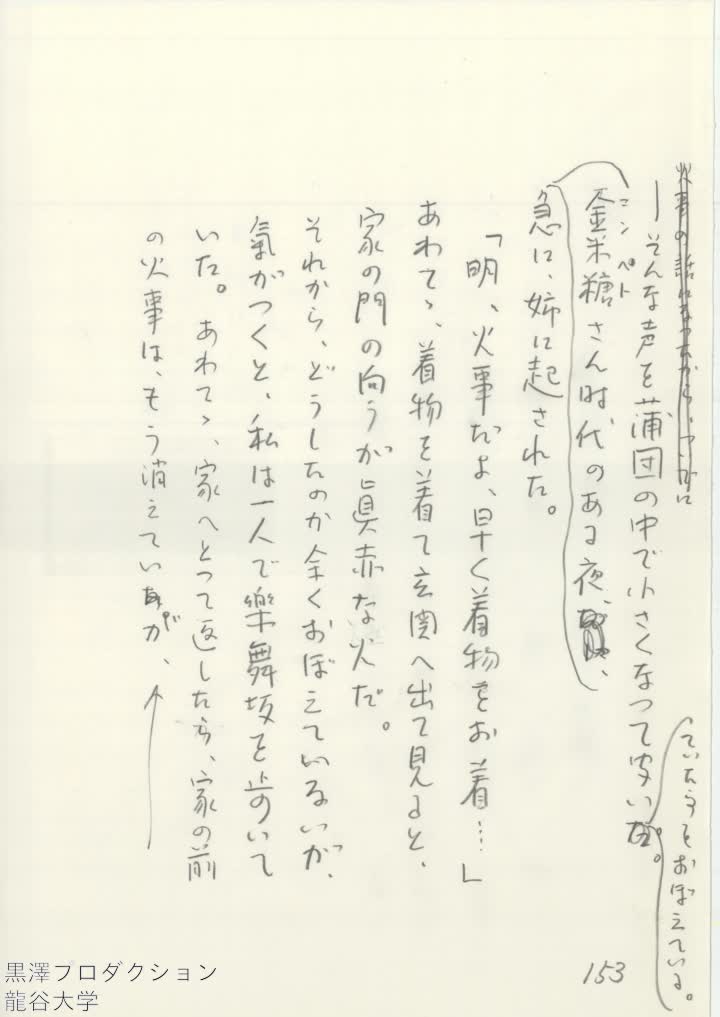 火事の話になつたから、ついでに
ーそんな声を蒲団の中で小さくなつて聞い
ていた方をおぼえている。
コンペト
金米糖さん時代のある夜、
急に、姉に起された。
「明、火事だよ、早く着物をお着…」
あわてゝ、着物を着て玄関へ出て見ると、
家の門の向うが眞赤な火だ。
それから、どうしたのか全くおぼえていないが、
氣がつくと、私は一人で樂舞坂を歩いて
いた。あわてゝ、家へとつて返したら、家の前
の火事は、もう消えていたが、
153
黒澤プロダクション
龍谷大学